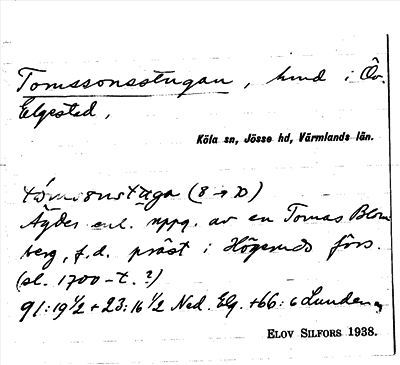 Tomssonsstugan, hmd i Öv.
Elgestad,
Köla sn, Jösse hd, Värmlands län.
(8→20)
Ägdes enl. uppg. av en Tomas Blom
berg, f.d. präst i Högeruds förs.
(sl. 1700-t.?)
91:19½ + 23:16½ Ned. Elg. +66:6 Lunden
ELOV SILFORS 1938.